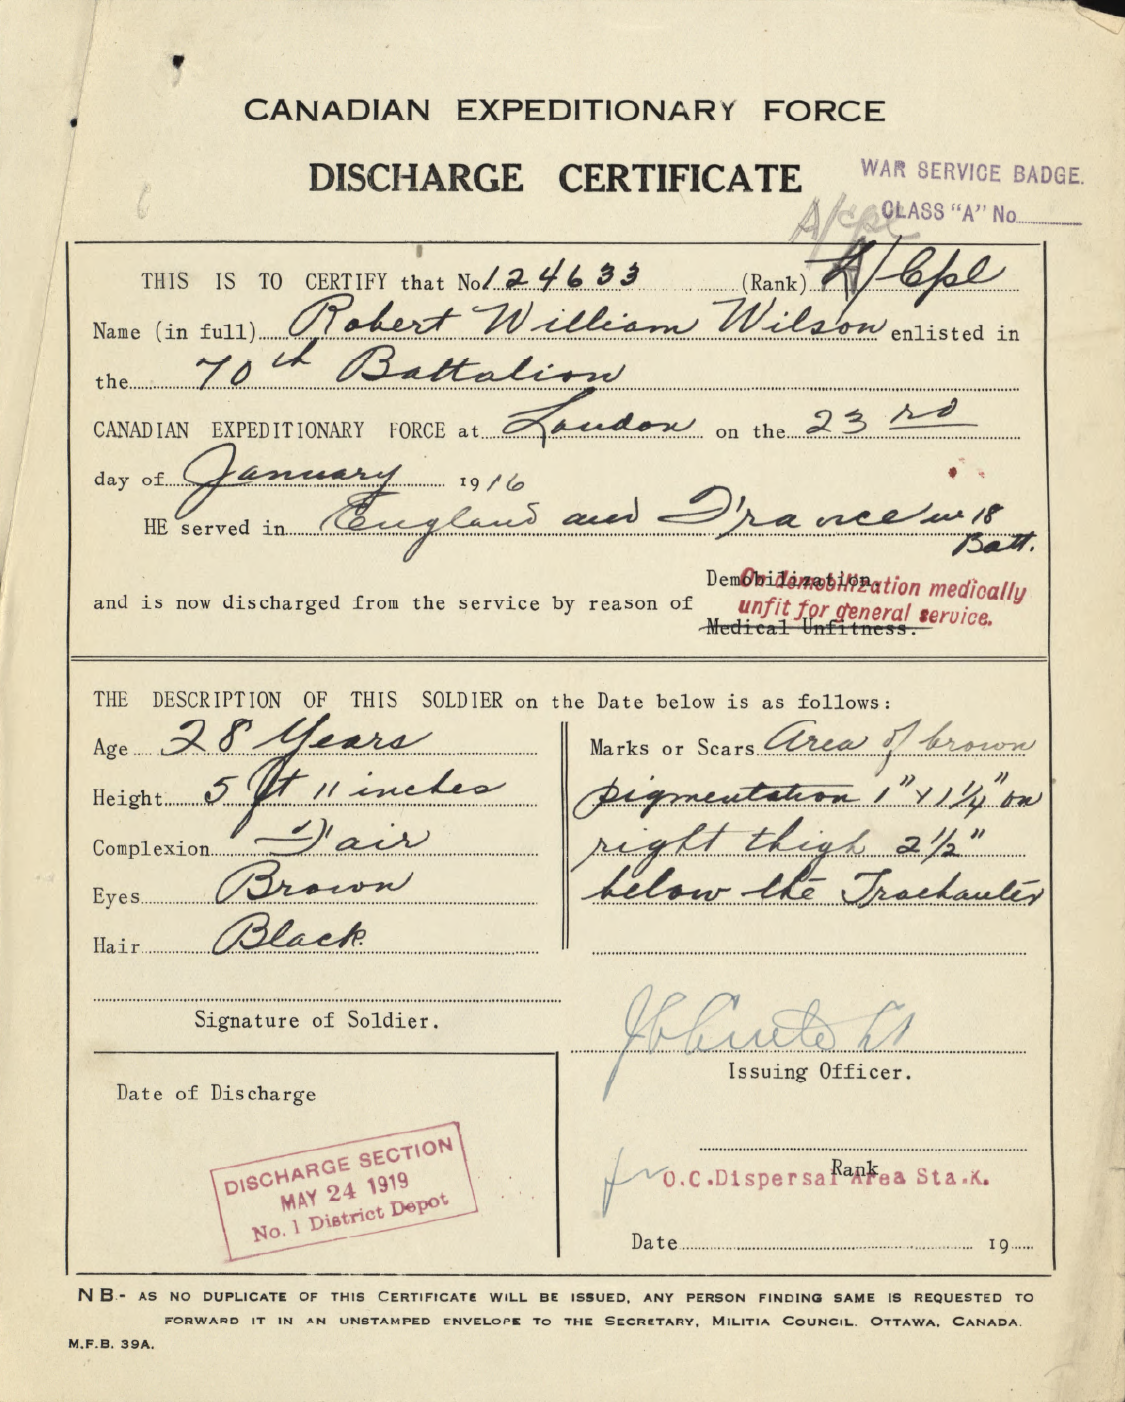 CANADIAN EXPEDITIONARY FORCE
DISCHARGE CERTIFICATE
WAR SERVICE BADGE.
CLASS "A" No
A/Cpl
THIS IS TO CERTIFY that No 124633 (Rank) A/Cpl
Name (in full) Robert William Wilson enlisted in
the 70th Battalion
CANADIAN EXPEDITIONARY FORCE at London on the 23rd
day of January 1916
HE served in England and France w 18
Batt.
and is now discharged from the service by reason of
Demobilization.
On demobilization medically
unfit for general service.
Medical Unfitness.
THE DESCRIPTION OF THIS SOLDIER on the Date below is as follows:
Age 28 Years
Height 5 ft 11 inches
Complexion Fair
Eyes Brown
Hair Black
Marks or Scars Area of brown
pigmentation 1" x 1 1/4" on
right thigh 2 1/2"
below the Trochanter
Signature of Soldier.
Issuing Officer.
Date of Discharge
DISCHARGE SECTION
MAY 24 1919
No. 1 District Depot
Rank
for O.C. Dispersal Area Sta. K.
Date 19
NB.- AS NO DUPLICATE OF THIS CERTIFICATE WILL BE ISSUED, ANY PERSON FINDING SAME IS REQUESTED TO
FORWARD IT IN AN UNSTAMPED ENVELOPE TO THE SECRETARY, MILITIA COUNCIL. OTTAWA, CANADA.
M.F.B. 39A.